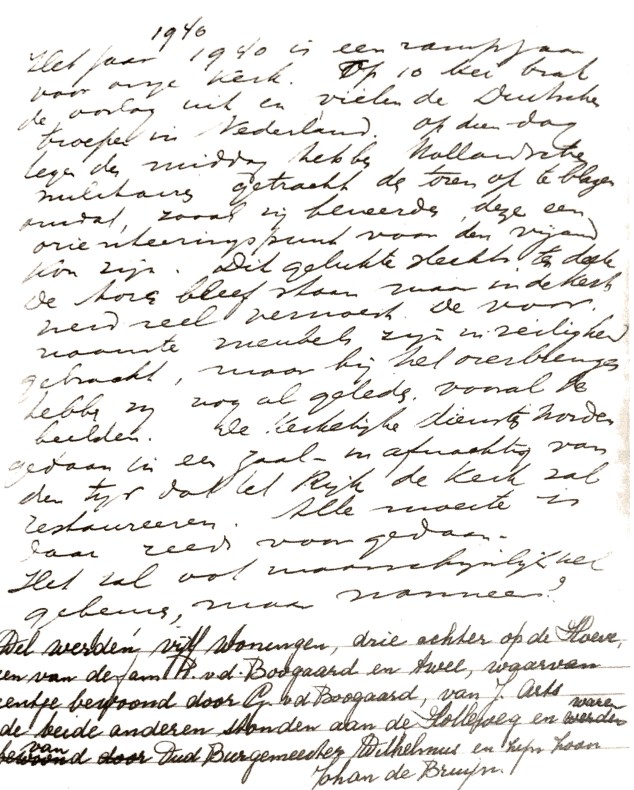 1940
Het jaar 1940 is een rampjaar
voor onze kerk. Op 10 Mei brak
de oorlog uit en vielen de Duitsche
troepen in Nederland. op dien dag
tegen de middag hebben Hollandsche
militairen getracht de toren op te blazen
omdat, zooals zij beweerden, deze een
orienteeringspunt voor den vijand
kon zijn. Dit gelukte slechts ten deele
De toren bleef staan maar in de kerk
werd veel vernield. De voor.
naamste meubels zijn in veiligheid
gebracht, maar bij het overbrengen
hebben zij nog al geleden, vooral de
beelden. De kerkelijke diensten worden
gedaan in een zaal in afwachting van
den tijd dat het Rijk de kerk zal
restaureeren. Alle moeite is
daar reeds voor gedaan.
Het zal ook waarschijnlijk wel
gebeuren, maar wanneer?
Wel werden vijf woningen, drie achter op de Hoeve,
een van de fam. v.d. Boogaard en twee, waarvan
eentje bewoond door G. v.d. Boogaard, van J. Arts
de beide anderen stonden aan de en waren
van Oud Burgemeester Wilhelmus en zijn zoon
Johan de Bruijn.